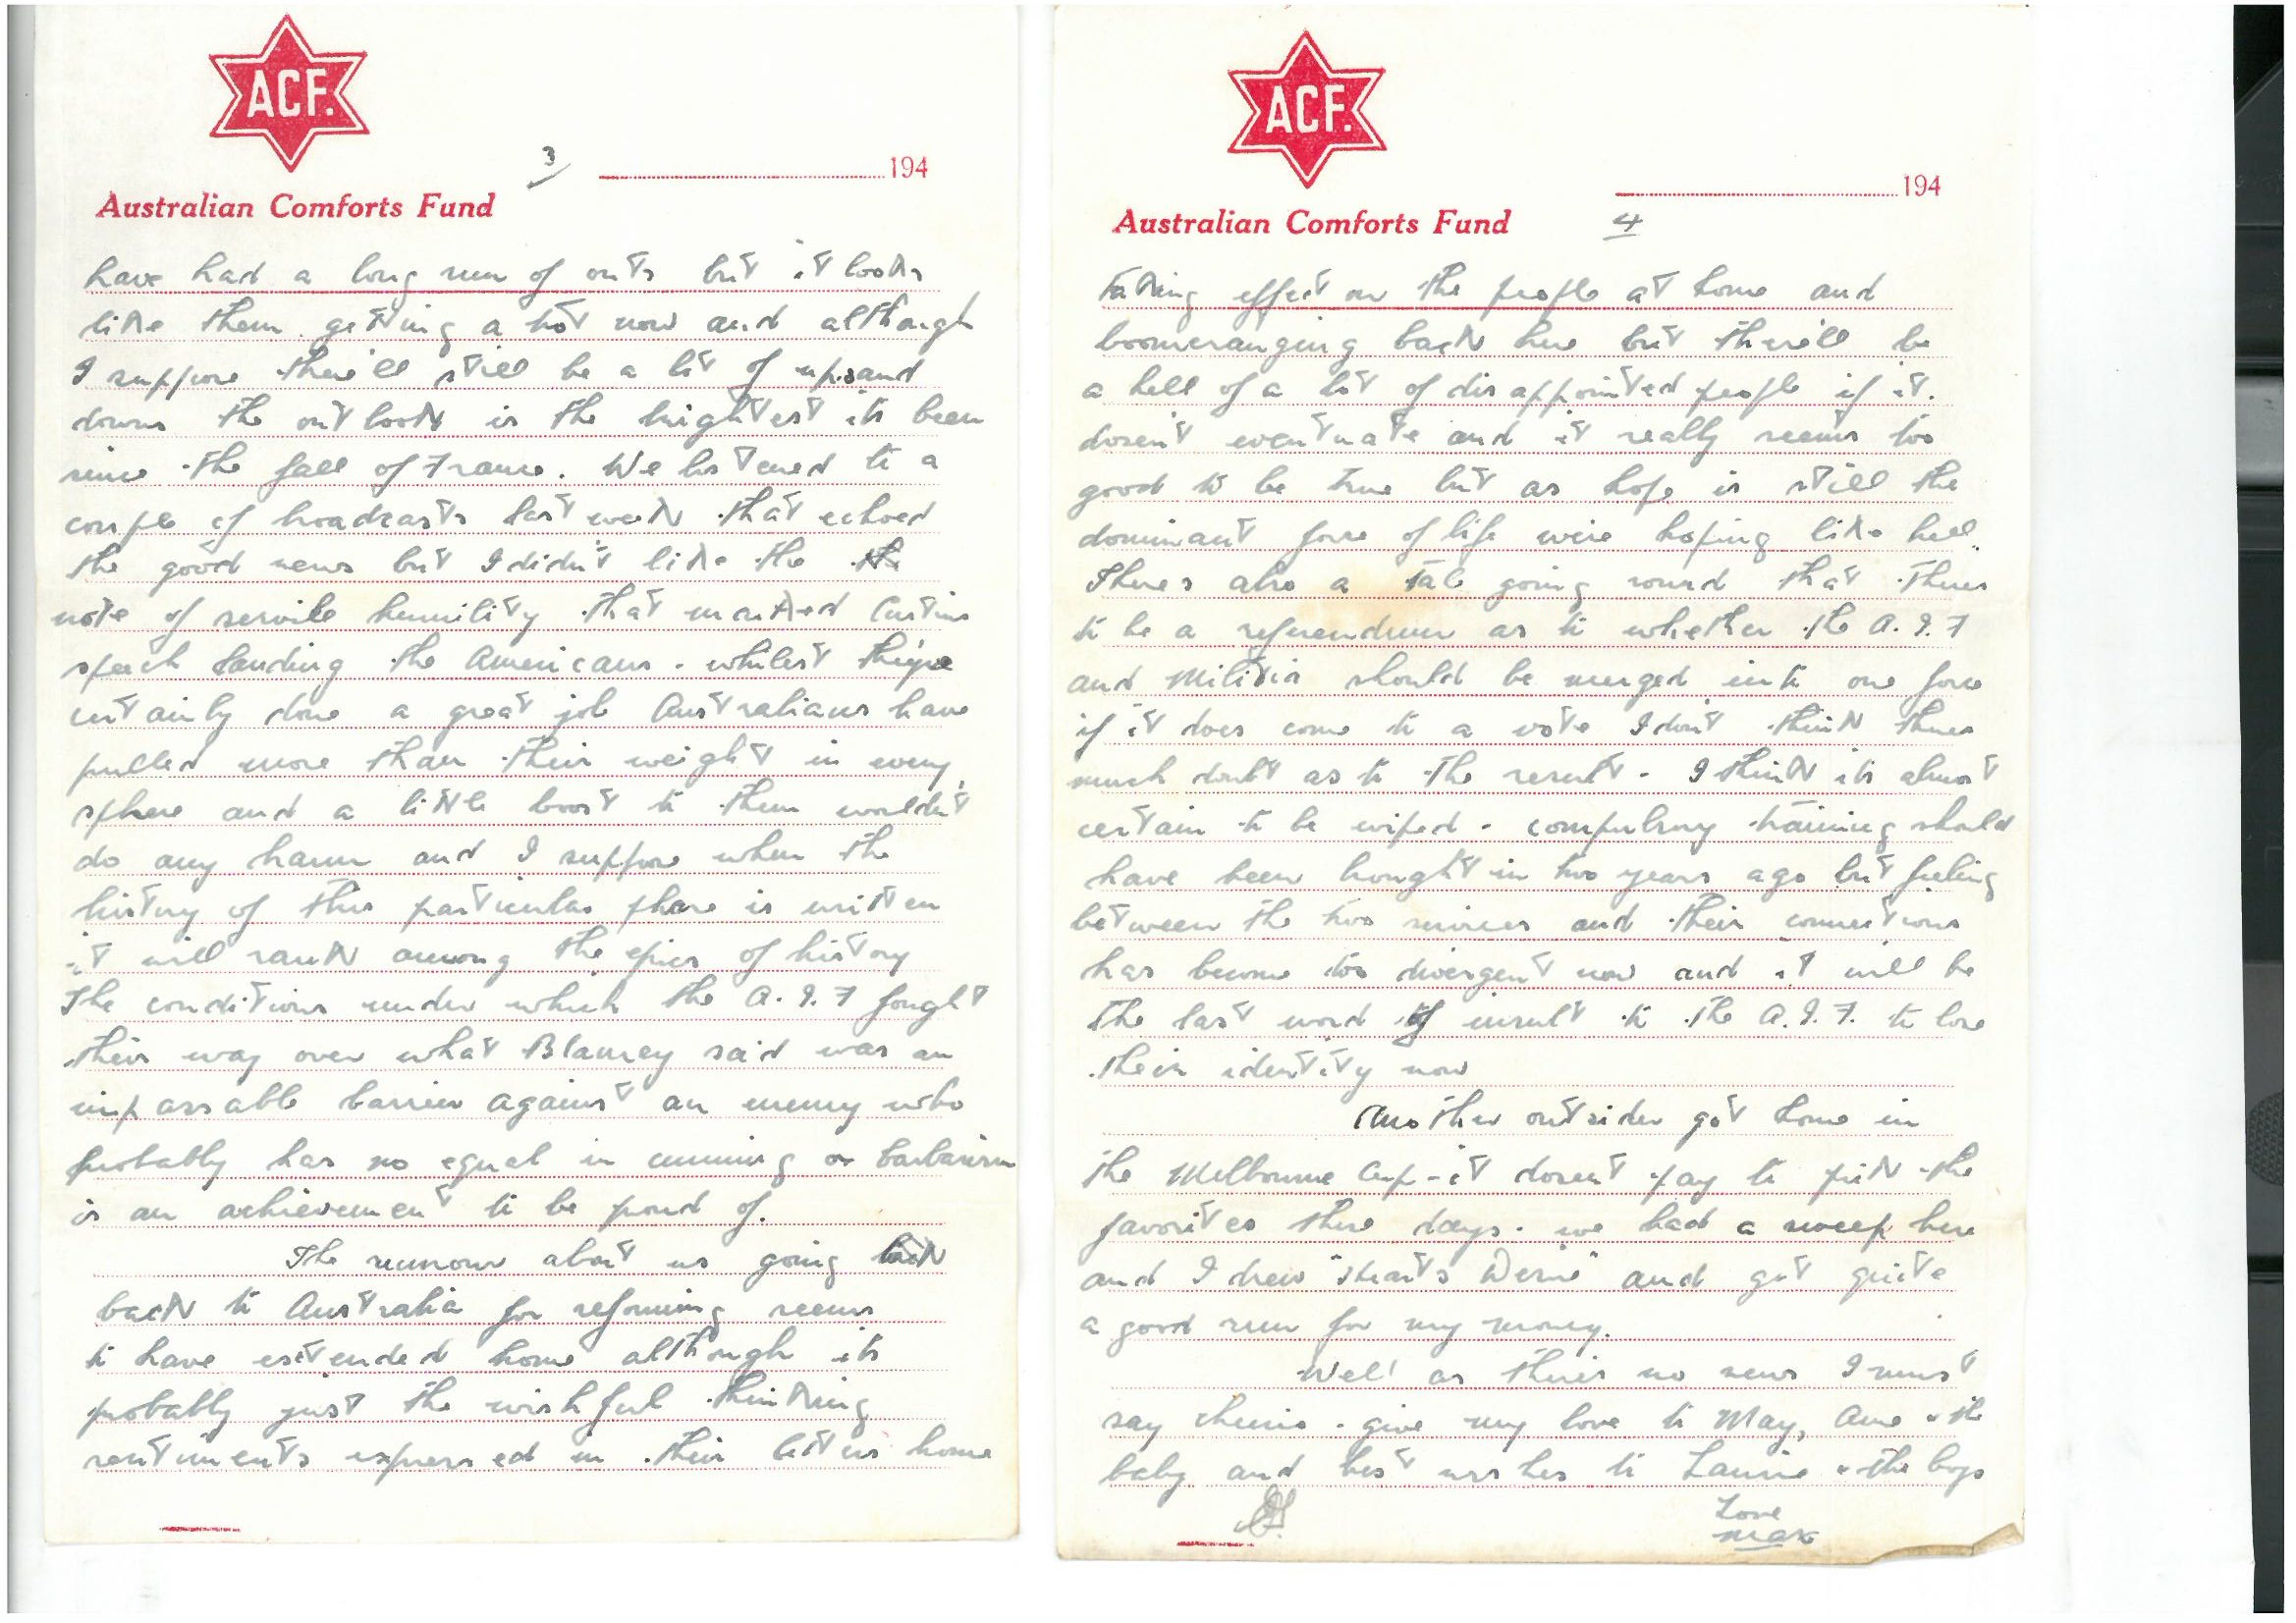 ACF.
3
194
Australian Comforts Fund
have had a long run of outs but it looks
like them getting a hot now and although
I suppose there'll still be a lot of ups and
downs the outlook is the brightest its been
since the fall of France. We listened to a
couple of broadcasts last week that echoed
the good news but I didn't like the the
note of servile humility that marked Curtins
speech lauding the Americans. whilest they've
certainly done a great job Australians have
pulled more than their weight in every
sphere and a little boost to them wouldn't
do any harm and I suppose when the
history of this particular phase is written
it will rank among the epics of history
The conditions under which the A.I.F fought
their way over what Blamey said was an
impassable barrier against an enemy who
probably has no equal in cunning or barbarism
is an achievement to be proud of.
The rumour about us going back
back to Australia for reforming seems
to have extended home although its
probably just the wishful thinking
sentiments expressed in their letters home
ACF.
194
Australian Comforts Fund
4
taking effect on the people at home and
boomeranging back here but there'll be
a hell of a lot of disappointed people if it.
doesn't eventuate and it really seems too
good to be true but as hope is still the
dominant force of life were hoping like hell.
Theres also a tale going round that theres
to be a referendum as to whether the A.I.F
and Militia should be merged into one force
if it does come to a vote I don't think theres
much doubt as to the result. I think its almost
certain to be wiped. compulsory training should
have been brought in two years ago but feeling
between the two services and their connections
has become too divergent now and it will be
the last word of insult to the A.I.F. to lose
their identity now
Another outsider got home in
the Melbourne Cup - it doesn't pay to pick the
favorites these days. we had a sweep here
and I drew "Hearts and got quite
a good run for my money.
Well as theres no news I must
say cheerio. give my love to May, Anne & the
baby and best wishes to Laurie & the boys
Love
Max